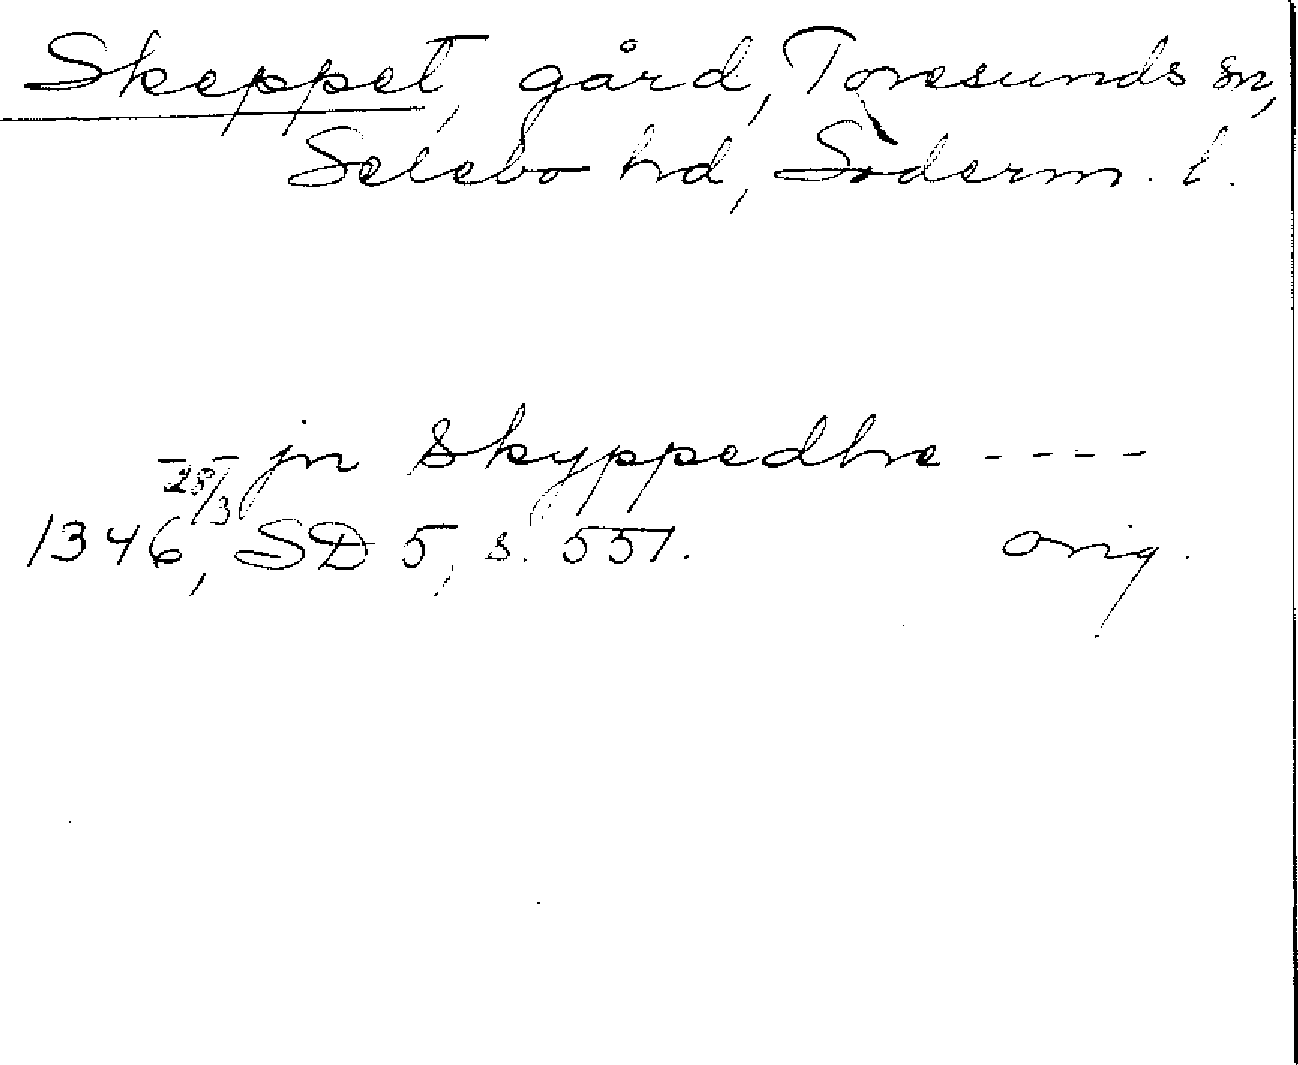 Skeppet, gård, Toresunds sn,
Selebo hd, Söderm. l.
- - jn Skyppedhe ----
28/3
1346, SD 5, s. 551. orig.